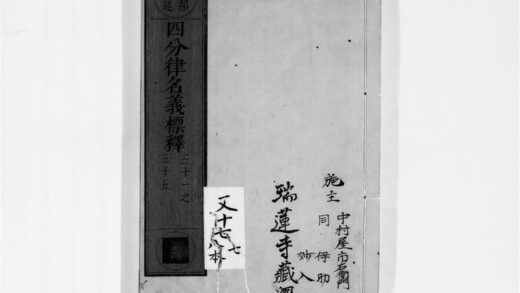 施主 中村屋市右衛門
同 伊助
妙入
瑞蓮寺藏
四分律名義標釋 三十一之三十五
又十七 七
八本